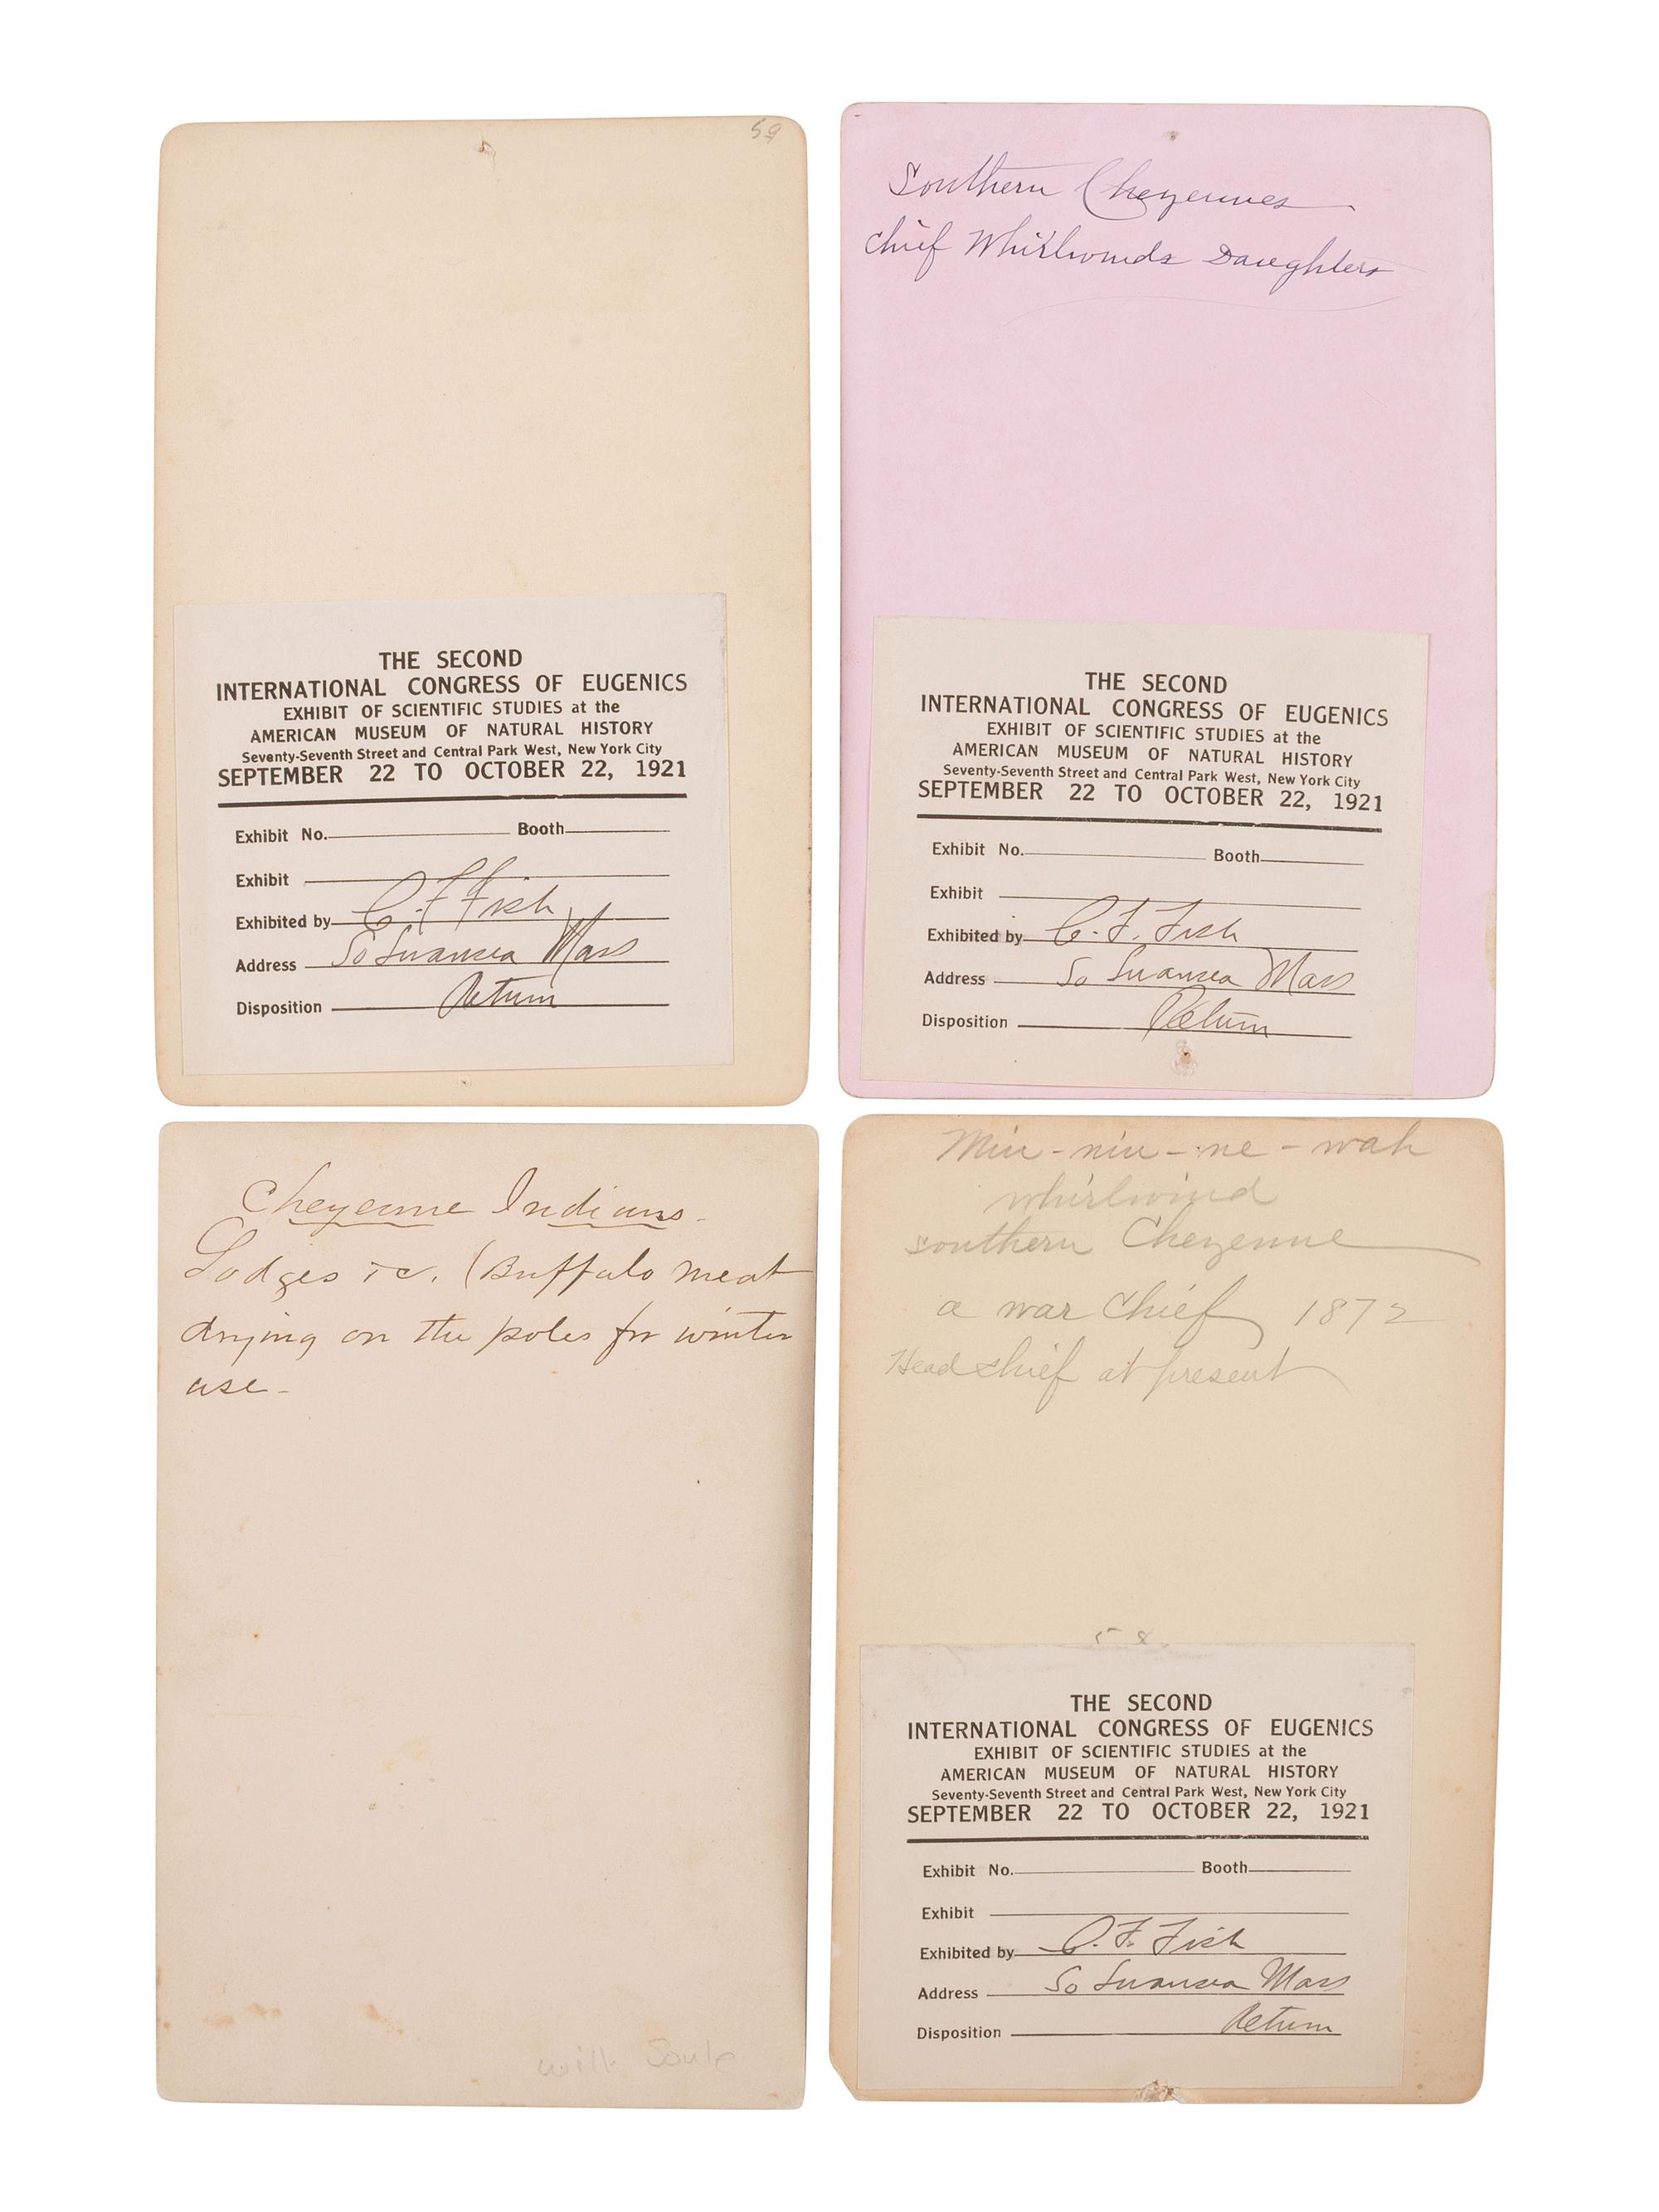 59
THE SECOND
INTERNATIONAL CONGRESS OF EUGENICS
EXHIBIT OF SCIENTIFIC STUDIES at the
AMERICAN MUSEUM OF NATURAL HISTORY
Seventy-Seventh Street and Central Park West, New York City
SEPTEMBER 22 TO OCTOBER 22, 1921
Exhibit No. Booth
Exhibit
Exhibited by C. F. Fish
Address So Swansea Mass
Disposition Return
Southern Cheyennes
Chief Whirlwinds Daughters
THE SECOND
INTERNATIONAL CONGRESS OF EUGENICS
EXHIBIT OF SCIENTIFIC STUDIES at the
AMERICAN MUSEUM OF NATURAL HISTORY
Seventy-Seventh Street and Central Park West, New York City
SEPTEMBER 22 TO OCTOBER 22, 1921
Exhibit No. Booth
Exhibit
Exhibited by C. F. Fish
Address So Swansea Mass
Disposition Return
Cheyenne Indians.
Lodges &c. (Buffalo meat
drying on the poles for winter
use -
Will Soule
Min-nin-ne-wah
Whirlwind
Southern Cheyenne
a war Chief 1872
Head chief at present
58
THE SECOND
INTERNATIONAL CONGRESS OF EUGENICS
EXHIBIT OF SCIENTIFIC STUDIES at the
AMERICAN MUSEUM OF NATURAL HISTORY
Seventy-Seventh Street and Central Park West, New York City
SEPTEMBER 22 TO OCTOBER 22, 1921
Exhibit No. Booth
Exhibit
Exhibited by C. F. Fish
Address So Swansea Mass
Disposition Return